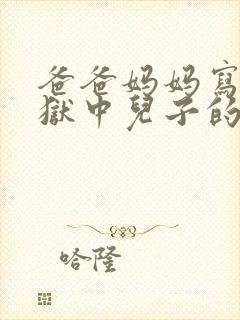 爸爸妈妈寫
獄中兒子的
哈隆